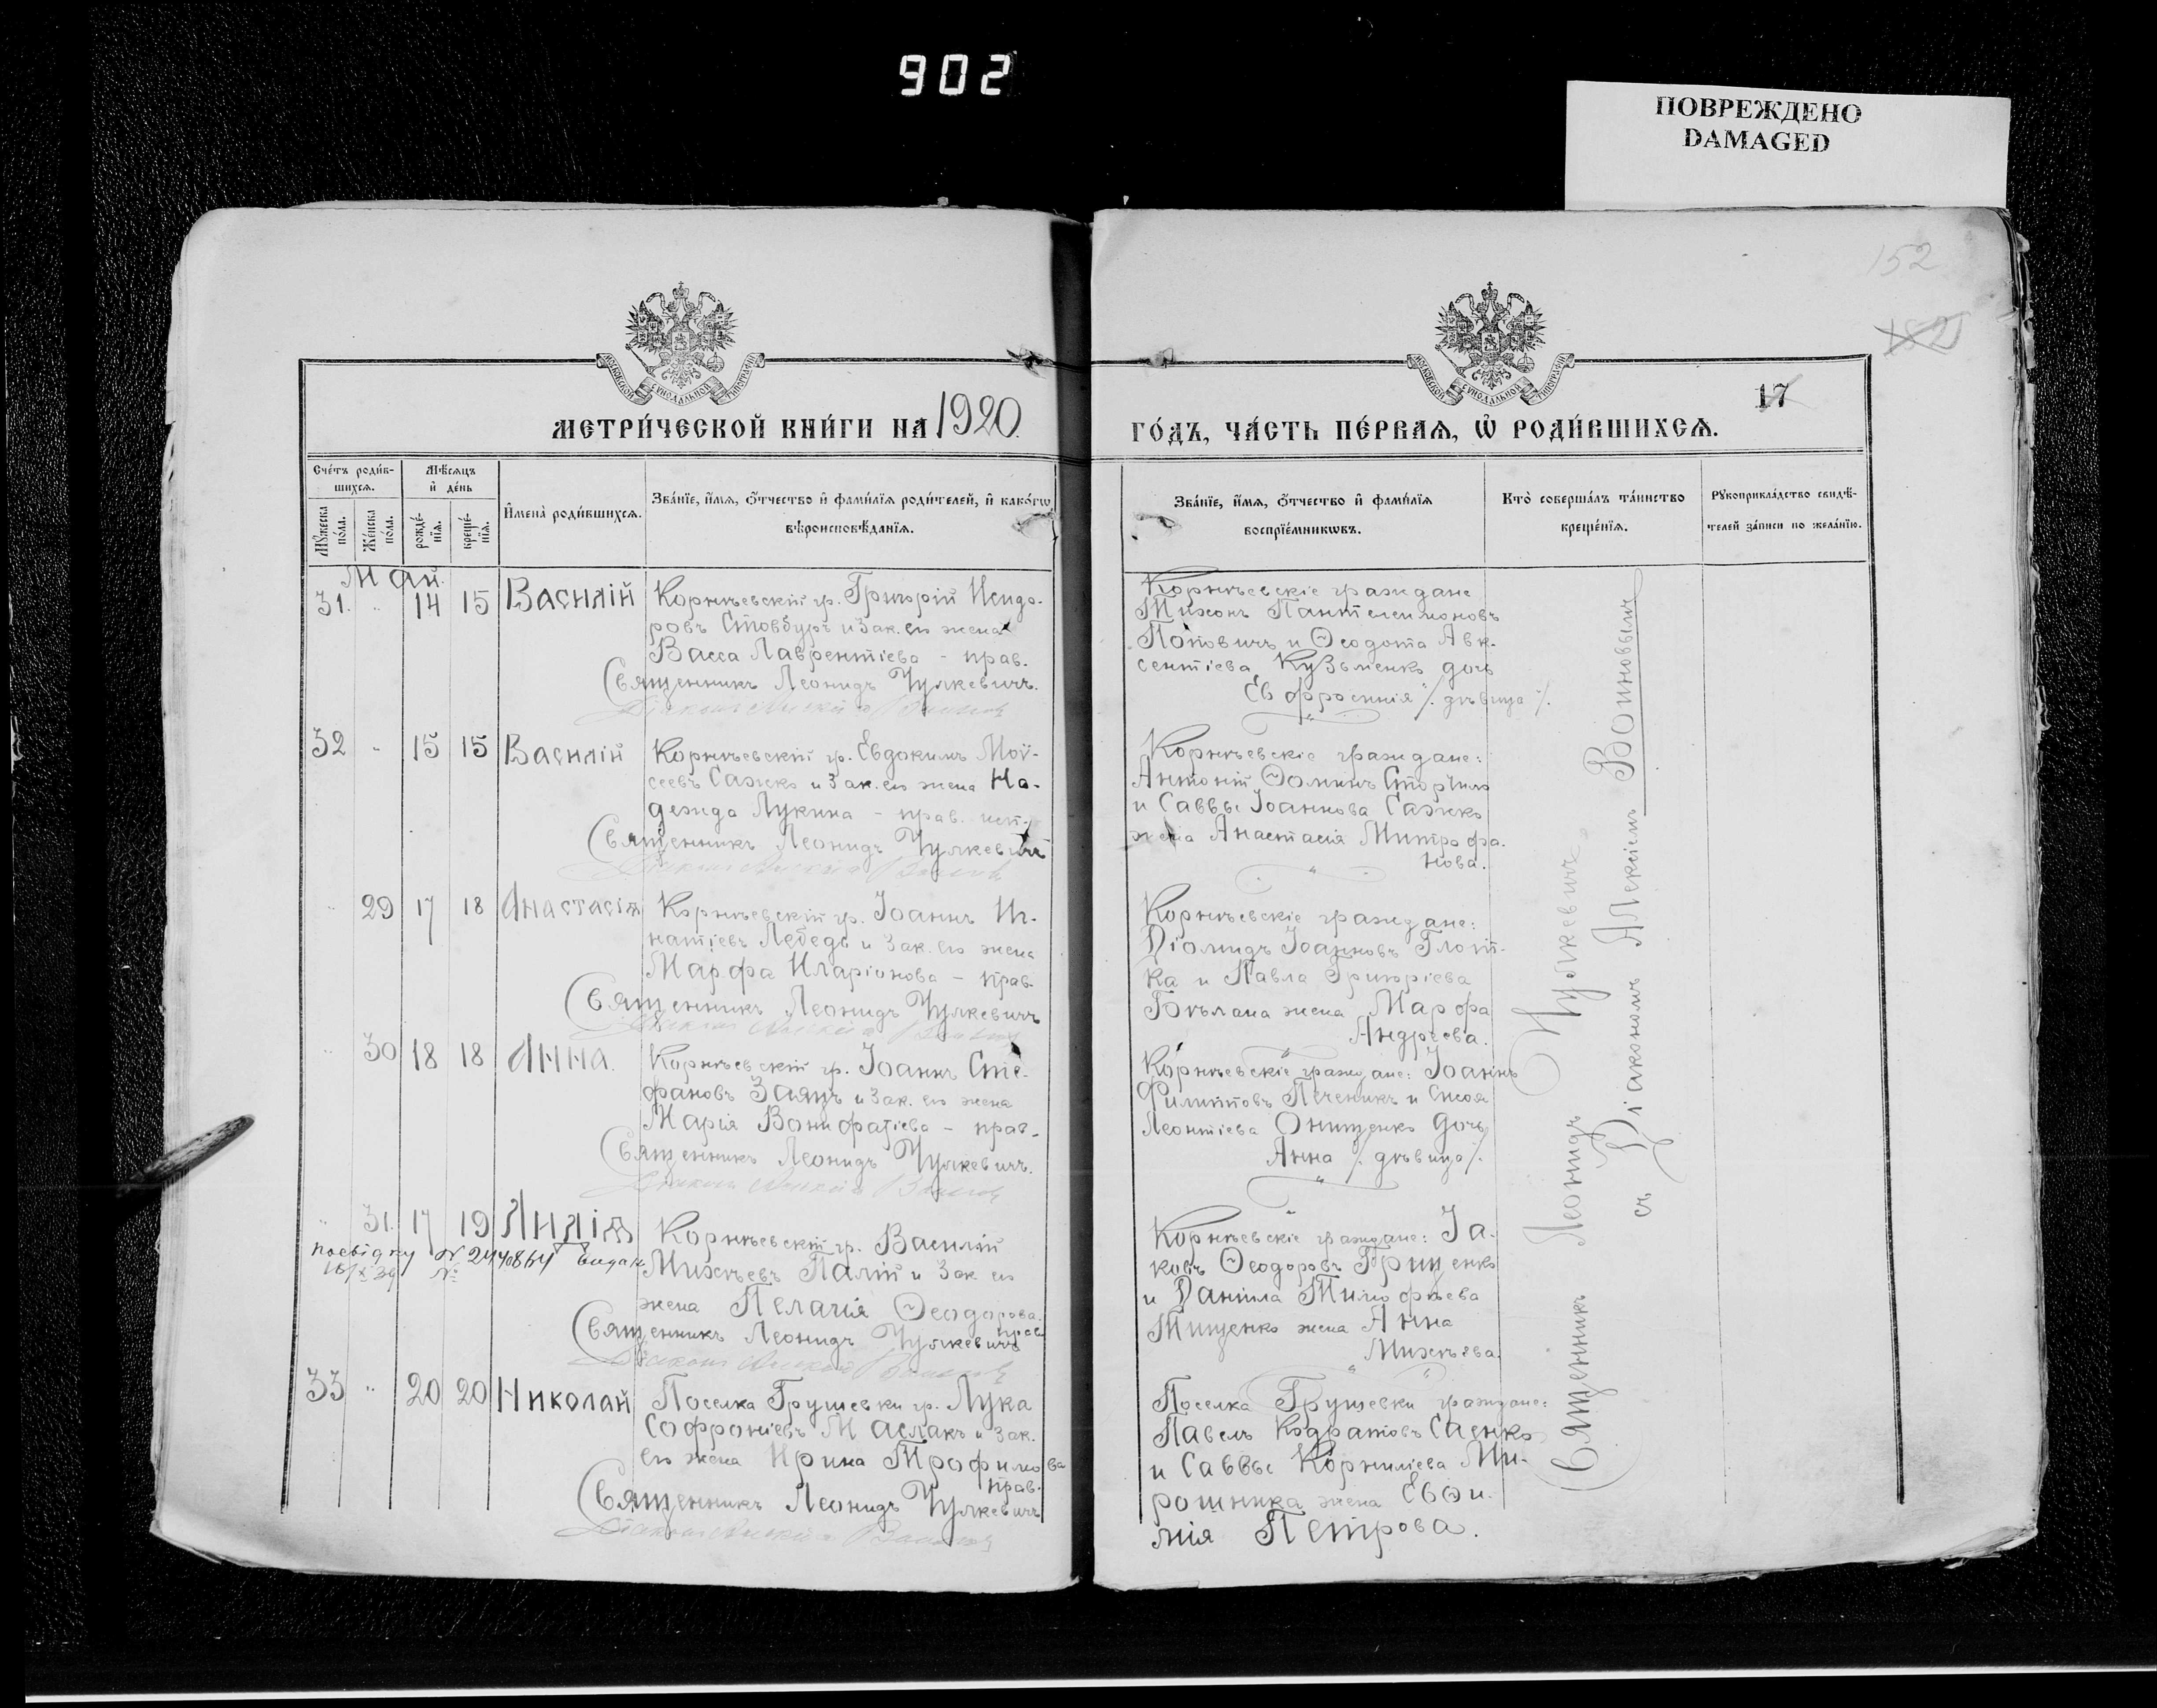 902
ПОВРЕЖДЕНО
DAMAGED
152
17
МЕТРИ́ЧЕСКОЙ КНИ́ГИ НА 1920
ГО́ДЪ, ЧА́СТЬ ПЕ́РВАѦ, Ѡ҆ РОДИ́ВШИХСѦ.
Сче́тъ роди́в-
шихсѧ.
Мꙋ́жеска по́ла.
Же́нска по́ла.
Мѣ́сѧцъ
и҆ де́нь
рожде́-
нїѧ.
креще́-
нїѧ.
И҆мена̀ роди́вшихсѧ.
Зва́нїе, и҆́мѧ, ѻ҆́тчество и҆ фами́лїѧ роди́телей, и҆ како́гѡ
вѣроисповѣ́данїѧ.
Зва́нїе, и҆́мѧ, ѻ҆́тчество и҆ фами́лїѧ
воспрїе́мникѡвъ.
Кто̀ соверша́лъ та́инство
креще́нїѧ.
Рꙋкоприкла́дство свидѣ́-
телей за́писи по жела́нїю.
Май.
31. " 14 15 Василій
Корнѣевскій гр. Григорій Исидо-
ровъ Стовбуръ и зак. его жена
Васса Лаврентіева - прав.
Священникъ Леонидъ Чулкевичъ.
Корнѣевскіе граждане
Тихонъ Пантелеимоновъ
Поповичъ и Ѳеодота Авк-
сентіева Кузьменко дочь
Евфросинія /. дѣвица /.
32 " 15 15 Василій
Корнѣевскій гр. Евдокимъ Мой-
сеевъ Сажко и зак. его жена На-
дежда Лукина - прав. исп.
Священникъ Леонидъ Чулкевичъ
Корнѣевскіе граждане:
Антоній Ѳоминъ
и Саввы Іоаннова Сажко
жена Анастасія Митрофа-
нова.
" 29 17 18 Анастасія
Корнѣевскій гр. Іоаннъ Иг-
натіевъ Лебедь и зак. его жена
Марфа Иларіонова - прав.
Священникъ Леонидъ Чулкевичъ
Корнѣевскіе граждане:
Діомидъ Іоанновъ Глот-
ка и Павла Григоріева
жена Марфа
Андреева.
" 30 18 18 Анна.
Корнѣевскій гр. Іоаннъ Сте-
фановъ Заяцъ и зак. его жена
Марія Вонифатіева - прав.
Священникъ Леонидъ Чулкевичъ.
Корнѣевскіе граждане: Іоаннъ
Филипповъ Печеникъ и
Леонтіева Онищенко дочь
Анна /. дѣвица /.
" 31. 17 19 Лилія
Корнѣевскій гр. Василій
Михѣевъ Палій и зак. его
жена Пелагія Ѳеодорова.
прав.
Священникъ Леонидъ Чулкевичъ
Корнѣевскіе граждане: Іа-
ковъ Ѳеодоровъ Грищенко
и Даніила Тимофѣева
Тищенко жена Анна
Михѣева.
33 " 20 20 Николай
Поселка Грушевки гр. Лука
Софроніевъ Маслакъ и зак.
его жена Ирина Трофимова
прав.
Священникъ Леонидъ Чулкевичъ
Поселка Грушевки граждане:
Павелъ Кодратовъ Саенко
и Саввы Корниліева Ми-
рошника жена Евѳи-
мія Петрова.
Священникъ Леонидъ Чулкевичъ
съ Діакономъ Алексіемъ Воиновымъ